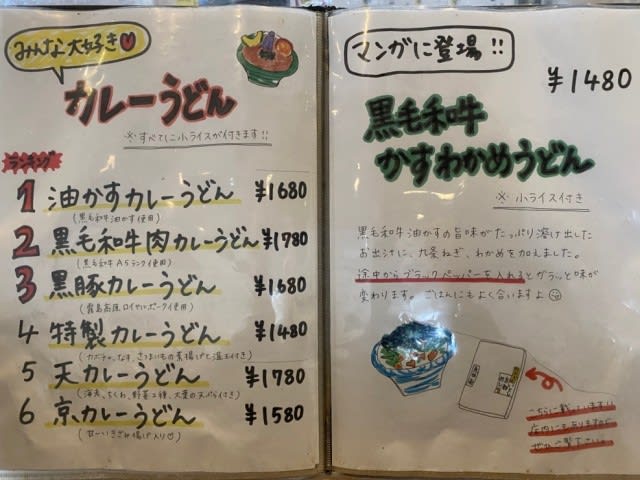 みんな大好き♥
カレーうどん
※すべてに小ライスが付きます!!
ランキング
1 油かすカレーうどん ¥1680
(黒毛和牛油かす使用)
2 黒毛和牛肉カレーうどん ¥1780
(黒毛和牛A5ランク使用)
3 黒豚カレーうどん ¥1680
(霧島高原ロイヤルポーク使用)
4 特製カレーうどん ¥1480
(カボチャ、なす、さつまいもの素揚げと温玉付き)
5 天カレーうどん ¥1780
(海老、ちくわ、野菜二種、大葉の天ぷら付き)
6 京カレーうどん ¥1580
(甘〜いきざみ揚げ入り♡)
マンガに登場!!
¥1480
黒毛和牛
かすわかめうどん
※小ライス付き
黒毛和牛油かすの旨味がたっぷり溶け出した
お出汁に、九条ねぎ、わかめを加えました。
途中からブラックペッパーを入れるとガラッと味が
変わります。ごはんにもよく合いますよ
こちらに載っています!!
店内にもありますので
ぜひご覧下さい